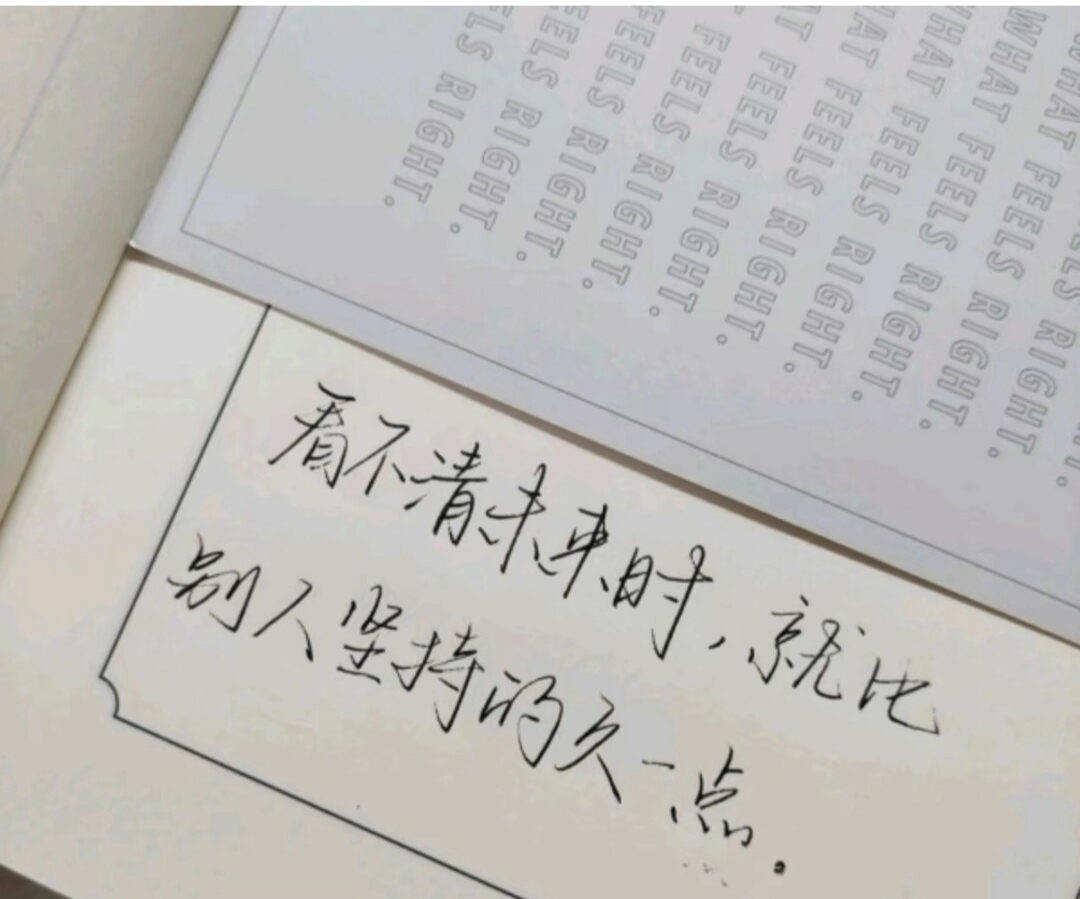 WHAT FEELS RIGHT.
WHAT FEELS RIGHT.
WHAT FEELS RIGHT.
WHAT FEELS RIGHT.
AT FEELS RIGHT.
AT FEELS RIGHT.
T FEELS RIGHT.
FEELS RIGHT.
EELS RIGHT.
ELS RIGHT.
看不清未来时,就比
别人坚持的久一点.